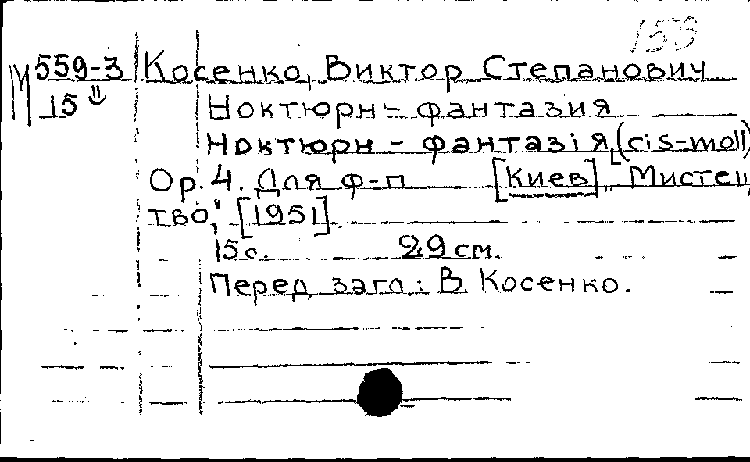 153
М 559-3 Косенко, Виктор Степанович
15 Ноктюрн-фантазия
Ноктюрн - фантазiя (cis-moll)
Op. 4. Для ф-п [Киев], "Мистец
тво," [1951].
15 с. 29 см.
Перед загл.: В. Косенко.